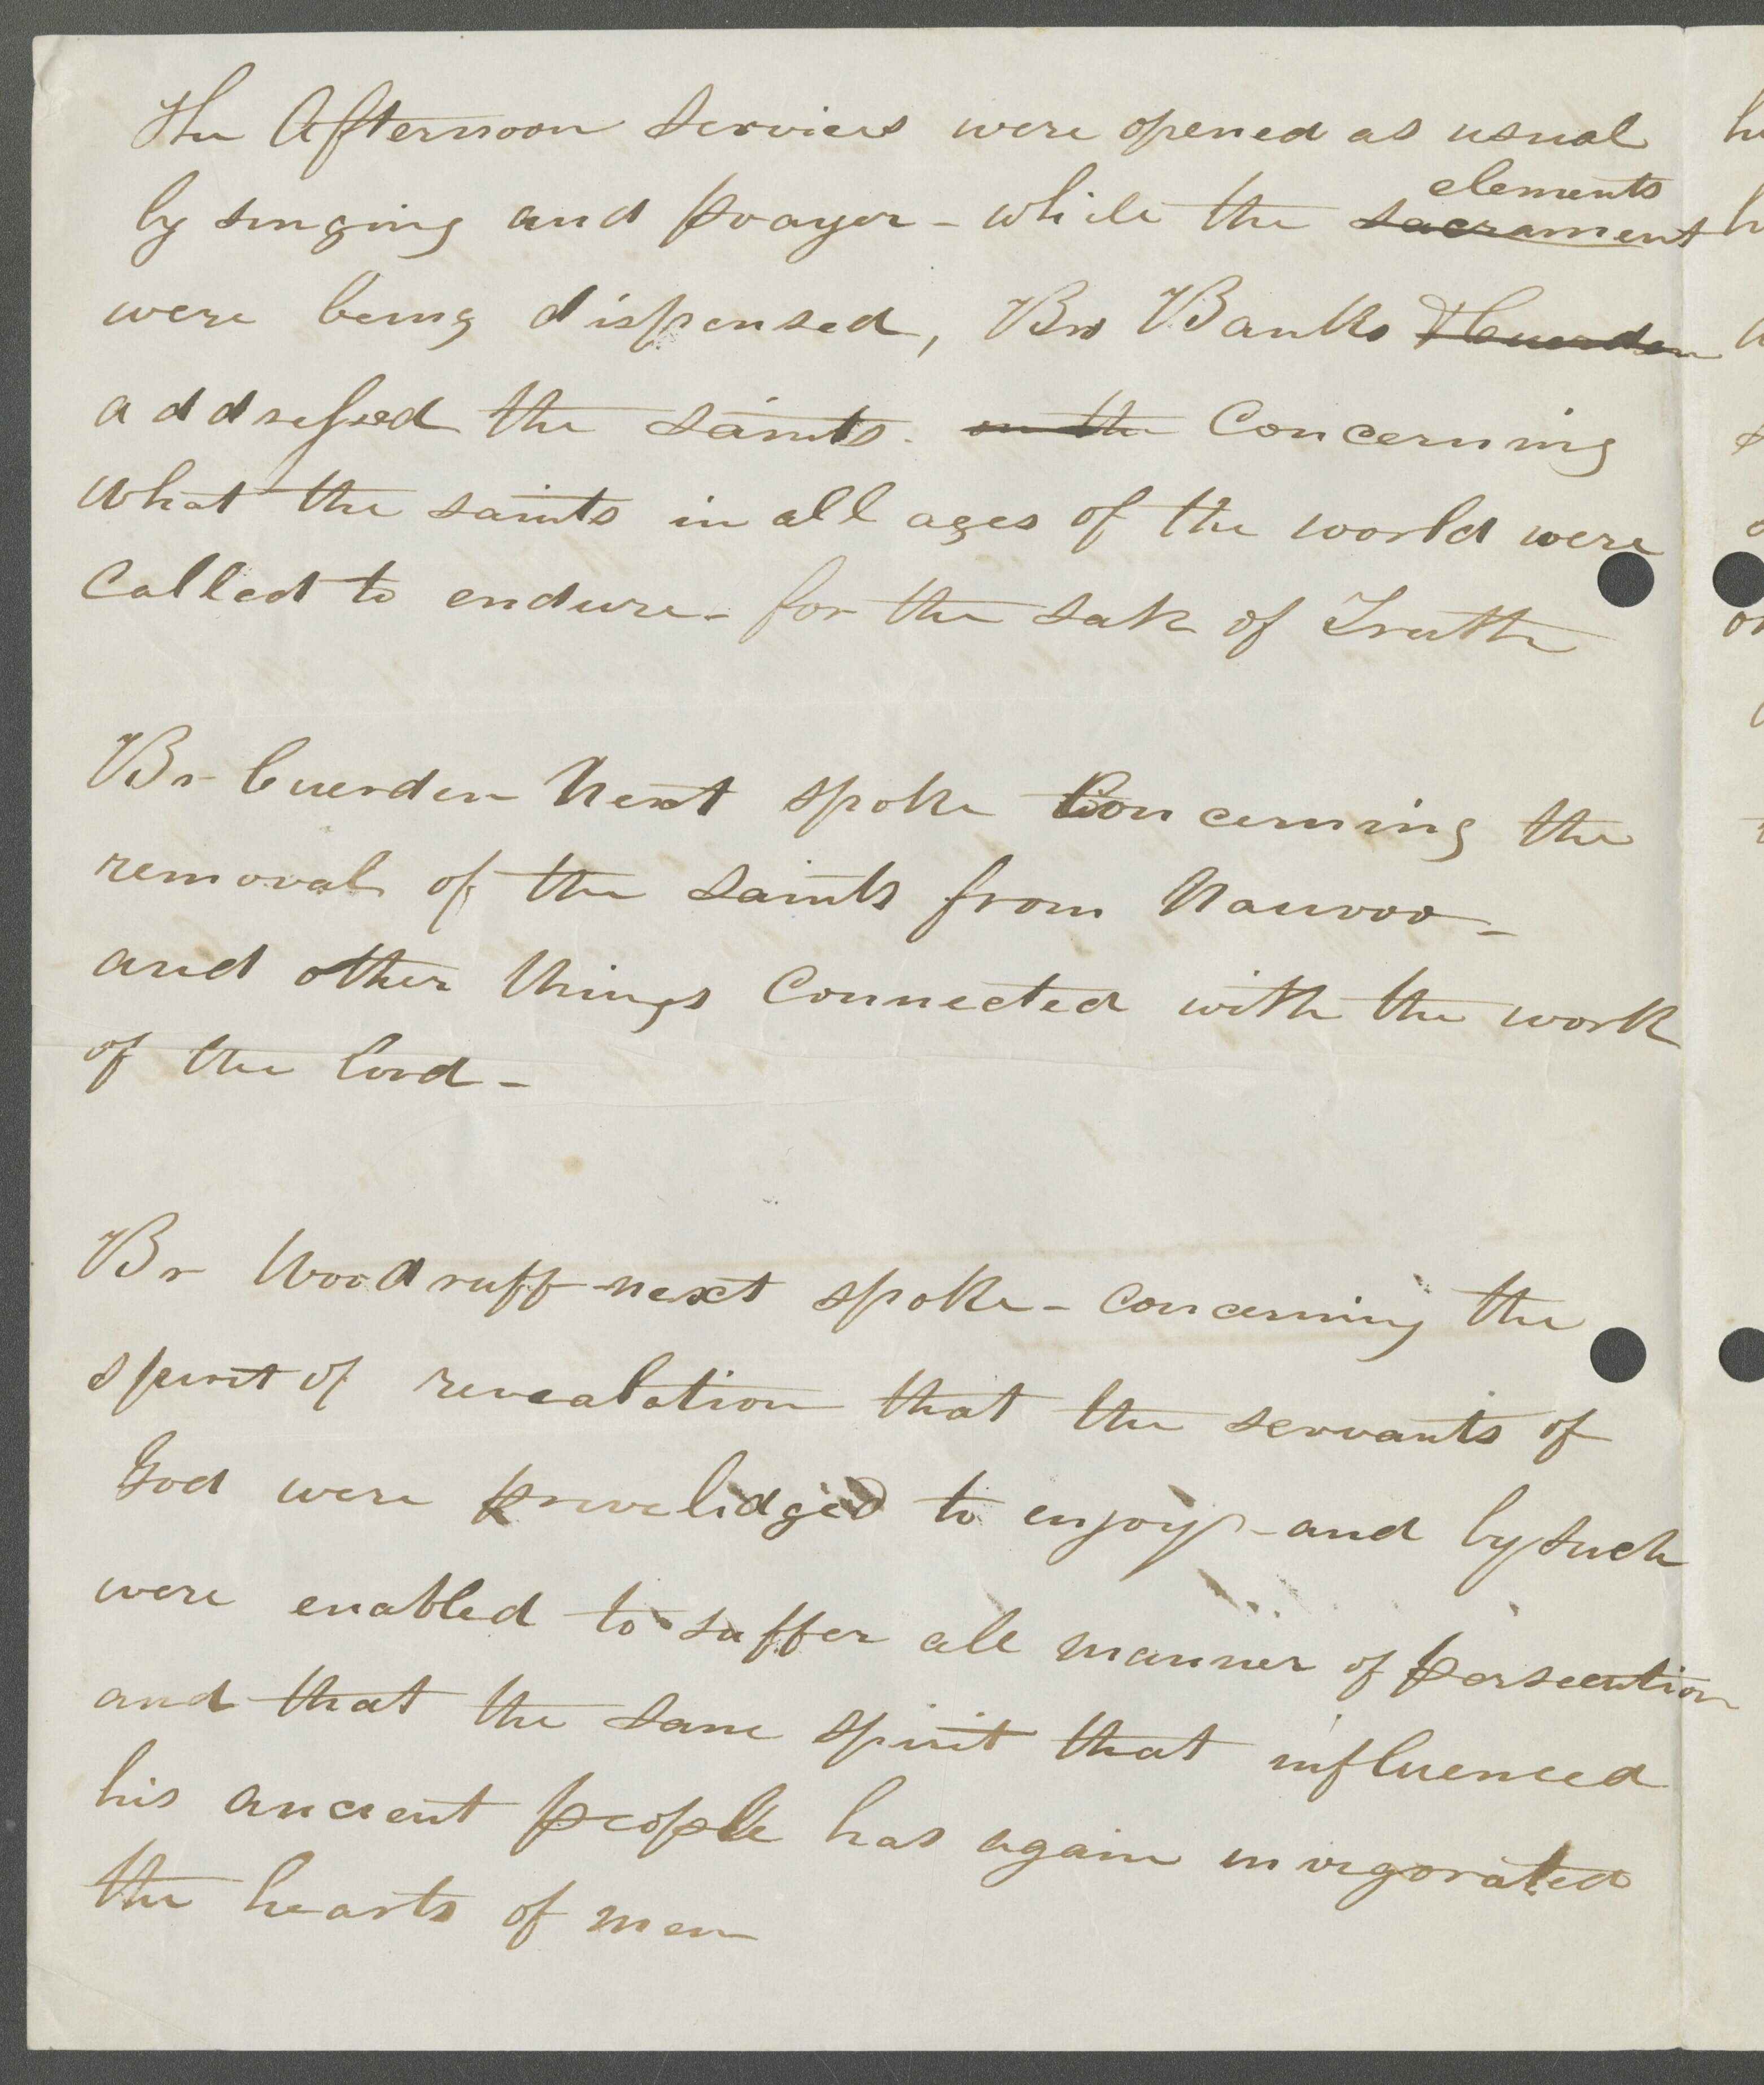 The Afternoon services were opened as usual
elements
by singing and prayer - while the sacrament
were being dispensed, Bro Banks & Cuerden
addressed the saints. on the Concerning
what the saints in all ages of the world were
Called to endure - for the sake of Truth
Br Cuerden Next spoke Concerning the
removal of the saints from Nauvoo -
and other things Connected with the work
of the lord -
Br Woodruff next spoke - concerning the
spirit of revealation that the servants of
God were previlidged to enjoy - and by such
were enabled to suffer all manner of persecution
and that the same spirit that influenced
his ancient people has again invigorated
the hearts of men